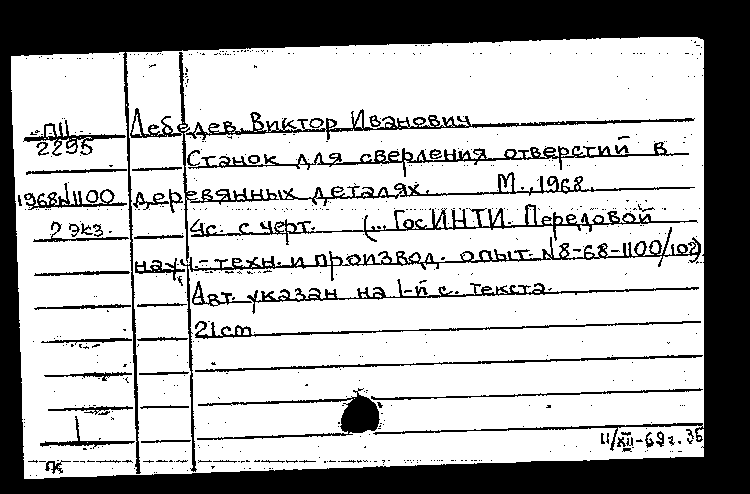 ПII Лебедев, Виктор Иванович
2295
Станок для сверления отверстий в
1968N1100 деревянных деталях. М., 1968.
2 экз. 4с. с черт. (... ГосИНТИ. Передовой
науч.-техн. и производ. опыт. N8-68-1100/102)
Авт. указан на 1-й с. текста.
21cm
11/XII-69г. 35